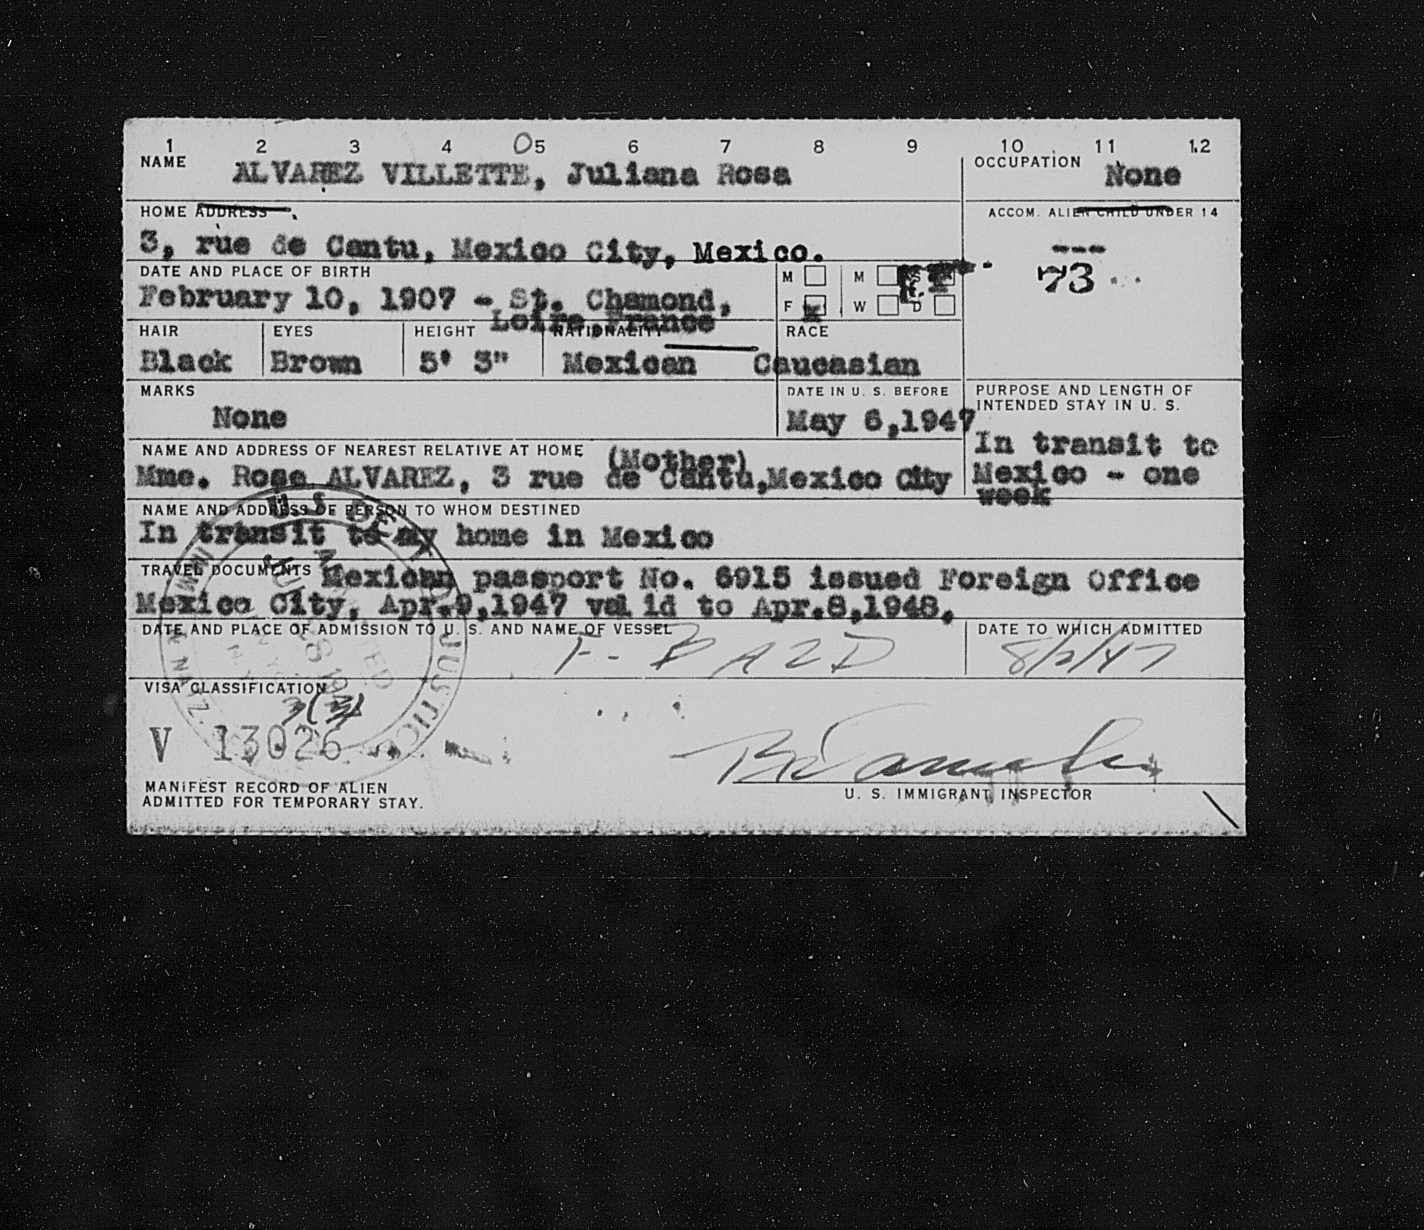 1 2 3 4 5 6 7 8 9 10 11 12
NAME ALVAREZ VILLETTE, Juliana Rosa
OCCUPATION None
HOME ADDRESS
3, rue de Cantu, Mexico City, Mexico.
ACCOM. ALIEN CHILD UNDER 14
---
73
DATE AND PLACE OF BIRTH
February 10, 1907 - St. Chamond,
Loire, France
M M S
F x W D
HAIR EYES HEIGHT NATIONALITY RACE
Black Brown 5' 3" Mexican Caucasian
MARKS
None
DATE IN U. S. BEFORE
May 6,1947
PURPOSE AND LENGTH OF
INTENDED STAY IN U. S.
In transit to
Mexico - one
week
NAME AND ADDRESS OF NEAREST RELATIVE AT HOME (Mother)
Mme. Rosa ALVAREZ, 3 rue de Cantu,Mexico City
NAME AND ADDRESS OF PERSON TO WHOM DESTINED
In transit to my home in Mexico
TRAVEL DOCUMENTS Mexican passport No. 6915 issued Foreign Office
Mexico City, Apr.9,1947 valid to Apr.8,1948.
DATE AND PLACE OF ADMISSION TO U. S. AND NAME OF VESSEL
F-BAZD
DATE TO WHICH ADMITTED
U. S. DEPT. JUSTICE
IMM. & NATZ.
VISA CLASSIFICATION
3(3)
V 13026
MANIFEST RECORD OF ALIEN
ADMITTED FOR TEMPORARY STAY.
U. S. IMMIGRANT INSPECTOR